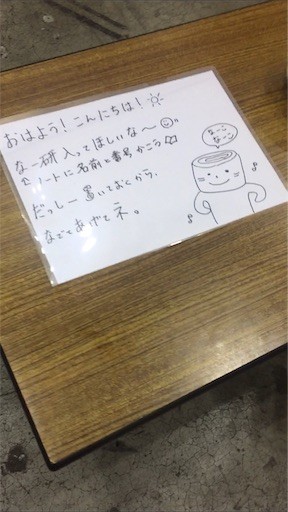 おはよう！こんにちは！
なー研入ってほしいな〜
ノートに名前と番号かこう
だっしー置いておくから、
なでてあげてネ。
なーこ
なーン